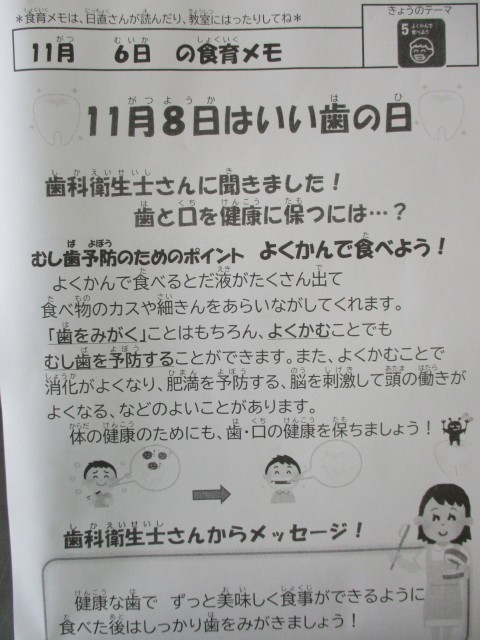 ＊食育メモは、日直さんが読んだり、教室にはったりしてね＊
きょうのテーマ
11月 6日 の食育メモ
5 よくかんで食べよう
11月8日はいい歯の日
歯科衛生士さんに聞きました！
歯と口を健康に保つには…？
むし歯予防のためのポイント よくかんで食べよう！
よくかんで食べるとだ液がたくさん出て
食べ物のカスや細きんをあらいながしてくれます。
「歯をみがく」ことはもちろん、よくかむことでも
むし歯を予防することができます。また、よくかむことで
消化がよくなり、肥満を予防する、脳を刺激して頭の働きが
よくなる、などのよいことがあります。
体の健康のためにも、歯・口の健康を保ちましょう！
歯科衛生士さんからメッセージ！
健康な歯で ずっと美味しく食事ができるように
食べた後はしっかり歯をみがきましょう！